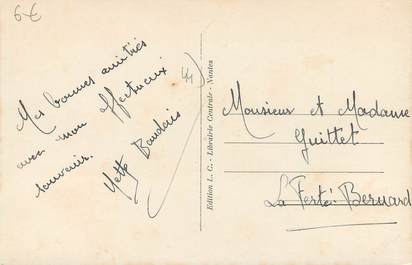 6€
Mes bonnes amitiés
avec mon affectueux
souvenir.
Yette
44
Edition L. C. - Librairie Centrale - Nantes
Monsieur et Madame
Guittet
La Ferté-Bernard